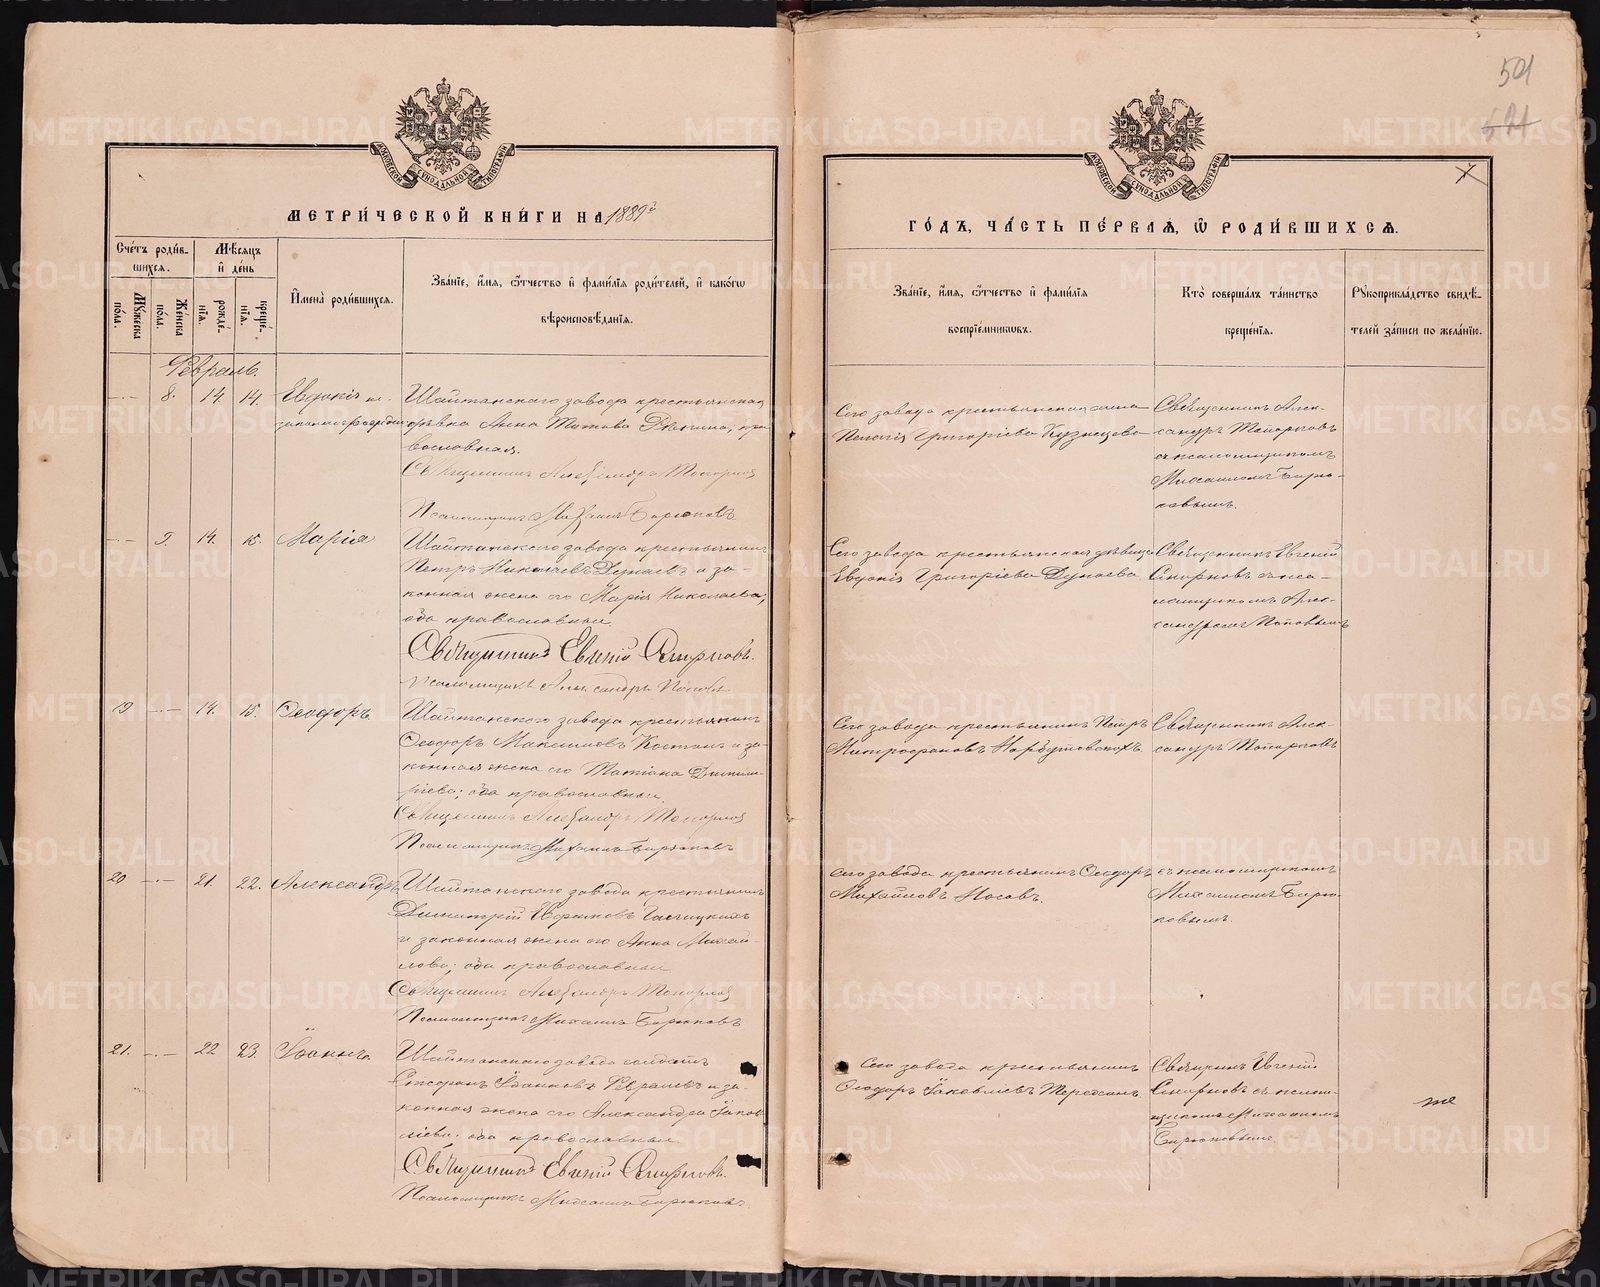 МЕТРИ́ЧЕСКОЙ КНИ́ГИ НА 1889й
Сче́тъ роди́в-
шихся.
Мѣ́сяцъ
и҆ де́нь
Мꙋ́жеска
пола.
Же́нска
пола.
рожде́-
нїѧ.
креще́-
нїѧ.
И҆мена̀ роди́вшихся.
Зва́нїе, и҆́мя, ѻ҆́тчество и҆ фами́лїя роди́телей, и҆ како́гѡ
вѣроисповѣ́данїя.
Февраль.
8. 14. 14. Евдокія не-
законнорожден
Шайтанскаго завода крестьянская
дѣвка Анна Титова, пра
вославная.
Священникъ Александръ Топорковъ
Псаломщикъ Михаилъ Бирюковъ
9. 14. 15. Марія
Шайтанскаго завода крестьянинъ
Петръ Николаевъ Дунаевъ и за-
конная жена его Марія Николаева,
оба православные
Священникъ Евгеній Смирновъ.
Псаломщикъ Александръ Поповъ
19 14. 15. Ѳеодоръ
Шайтанскаго завода крестьянинъ
Ѳеодоръ Максимовъ и за-
конная жена его Татіана Димит-
ріева; оба православные
Священникъ Александръ Топорковъ
Псаломщикъ Михаилъ Бирюковъ
20 21. 22. Александръ
Шайтанскаго завода крестьянинъ
Димитрій
и законная жена его Анна Михай-
лова; оба православные
Священникъ Александръ Топорковъ
Псаломщикъ Михаилъ Бирюковъ
21. 22 23. Іоаннъ
Шайтанскаго завода солдатъ
Стефанъ Іоанновъ Февралевъ и за-
конная жена его Александра Іаков
лева. оба православные.
Священникъ Евгеній Смирновъ.
Псаломщикъ Михаилъ Бирюковъ.
501
ГО́ДЪ, ЧА́СТЬ ПЕ́РВАЯ, Ѽ РОДИ́ВШИХСЯ.
Зва́нїе, и҆́мя, ѻ҆́тчество и҆ фами́лїя
воспрїе́мникѡвъ.
Кто̀ соверша́лъ та́инство
креще́нїя.
Рꙋкоприкла́дство свидѣ́-
телей за́писи по жела́нїю.
Сего завода крестьянская жена
Пелагія Григоріева Кузнецова
Священникъ Алек-
сандръ Топорковъ
съ псаломщикомъ
Михаиломъ Бирю-
ковымъ.
Сего завода крестьянская дѣвица
Евдокія Григоріева Дунаева
Священникъ Евгеній
Смирновъ съ пса-
ломщикомъ Алек-
сандромъ Поповымъ
Сего завода крестьянинъ Петръ
Митрофановъ Нарбутовскихъ
Священникъ Алек-
сандръ Топорковъ
Сего завода крестьянинъ Ѳеодоръ
Михайловъ Носовъ.
съ псаломщикомъ
Михаиломъ Бирю-
ковымъ
Сего завода крестьянинъ
Ѳеодоръ Іаковлевъ Терехинъ
Священникъ Евгеній
Смирновъ съ псалом-
щикомъ Михаиломъ
Бирюковымъ.
METRIKI.GASO-URAL.RU